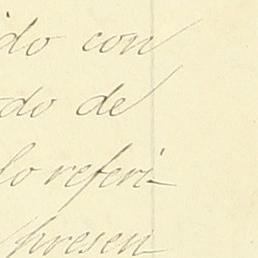 do con
do de
lo referi-
presen-